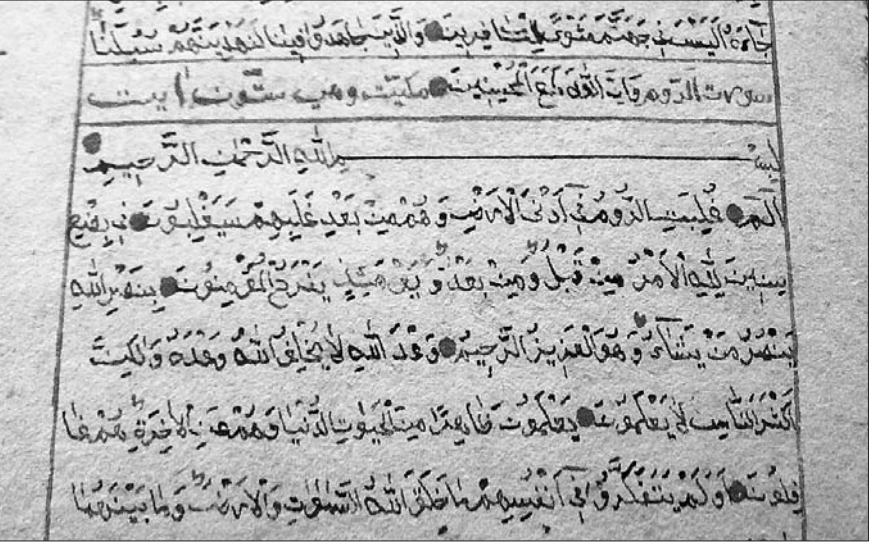 جَآءَهُ اَلَيْسَ فِي جَهَنَّمَ مَثْوًى لِلْكَافِرِينَ ● وَالَّذِينَ جَاهَدُوا فِينَا لَنَهْدِيَنَّهُمْ سُبُلَنَا
سورت الروم وَاِنَّ اللّٰهَ لَمَعَ الْمُحْسِنِينَ ● مكيّت وهي ستّون ايت
بِسْمِ اللّٰهِ الرَّحْمٰنِ الرَّحِيمِ ●
الٓمّ ● غُلِبَتِ الرُّومُ فِي اَدْنَى الْاَرْضِ وَهُمْ مِنْ بَعْدِ غَلَبِهِمْ سَيَغْلِبُونَ ● فِي بِضْعِ
سِنِينَ لِلّٰهِ الْاَمْرُ مِنْ قَبْلُ وَمِنْ بَعْدُ وَيَوْمَئِذٍ يَفْرَحُ الْمُؤْمِنُونَ ● بِنَصْرِ اللّٰهِ
يَنْصُرُ مَنْ يَشَآءُ وَهُوَ الْعَزِيزُ الرَّحِيمُ ● وَعْدَ اللّٰهِ لَا يُخْلِفُ اللّٰهُ وَعْدَهُ وَلٰكِنَّ
اَكْثَرَ النَّاسِ لَا يَعْلَمُونَ ● يَعْلَمُونَ ظَاهِرًا مِنَ الْحَيٰوتِ الدُّنْيَا وَهُمْ عَنِ الْاٰخِرَةِ هُمْ غَا
فِلُونَ ● اَوَلَمْ يَتَفَكَّرُوا فِي اَنْفُسِهِمْ مَا خَلَقَ اللّٰهُ السَّمٰوَاتِ وَالْاَرْضَ وَمَا بَيْنَهُمَا